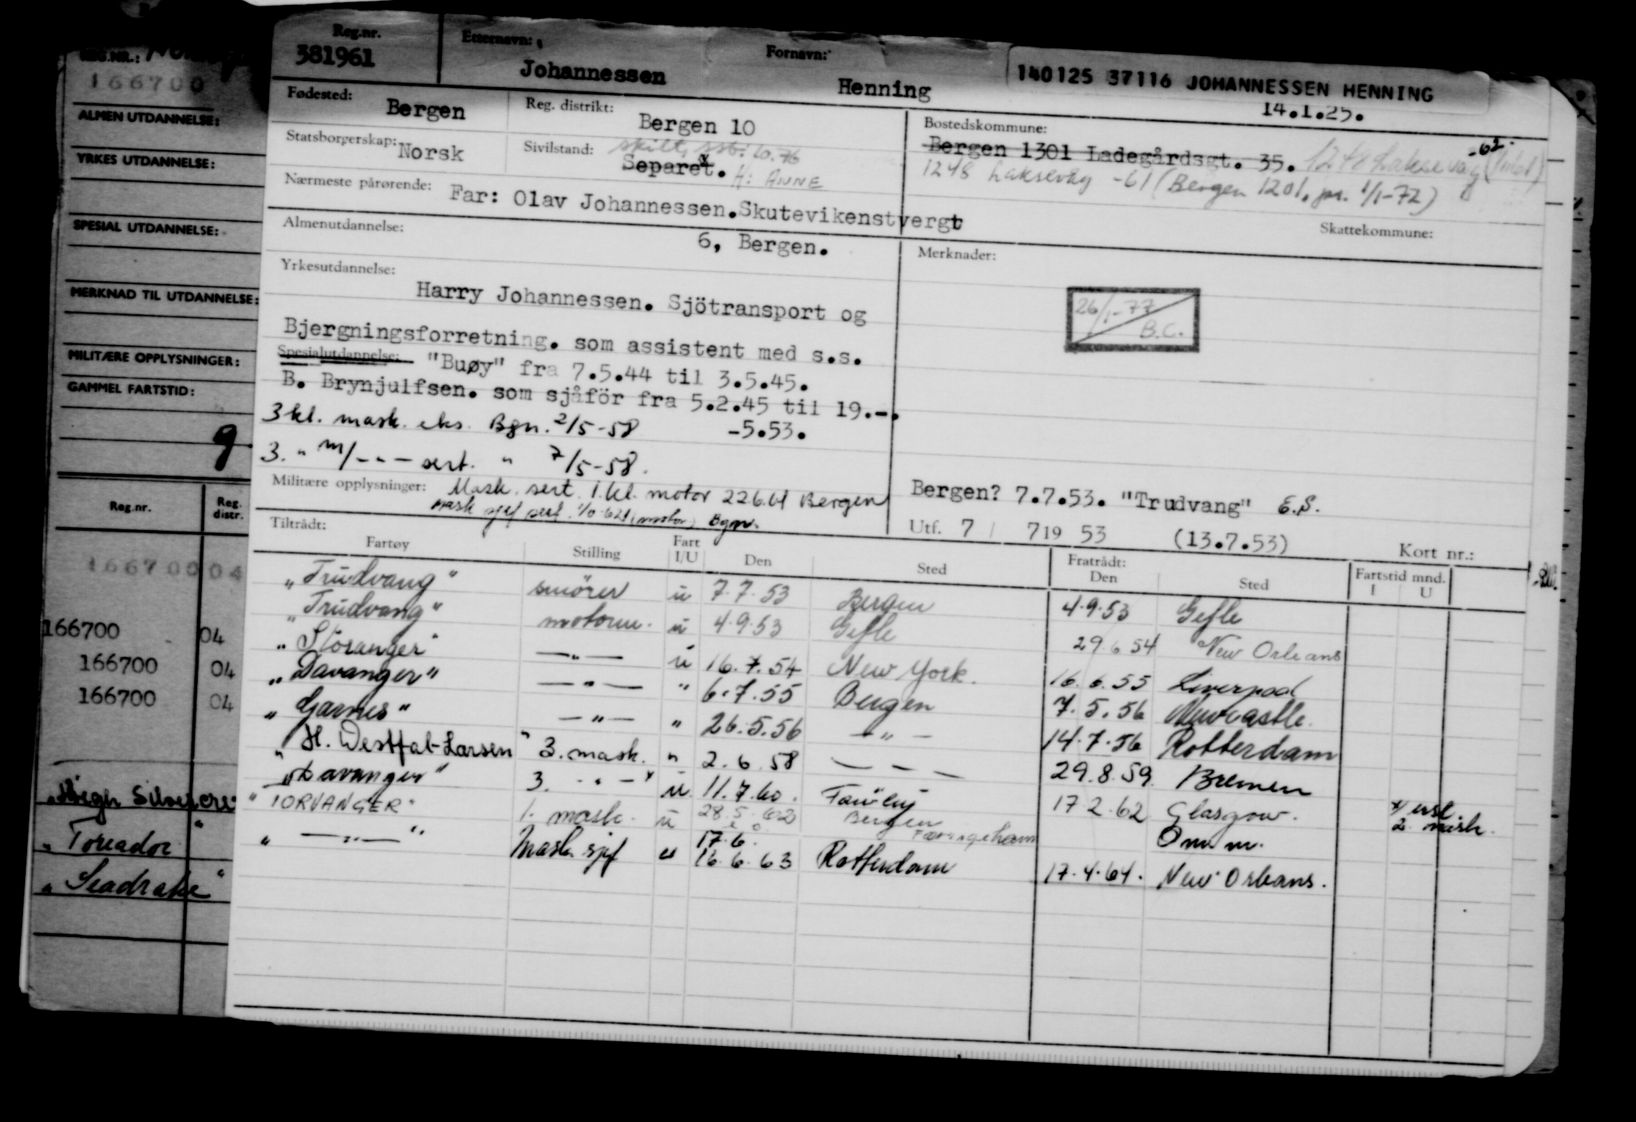 Reg.nr.
381961
Etternavn:
Johannessen
Fornavn:
Henning
140125 37116 JOHANNESSEN HENNING
14.1.25.
Fødested: Bergen
Reg. distrikt: Bergen 10
Bostedskommune:
Bergen 1301 Ladegårdsgt. 35.
1248 Laksevåg -61 (Bergen 1201, pr. 1/1-72)
Statsborgerskap: Norsk
Sivilstand: Separert.
H: ANNE
Nærmeste pårørende: Far: Olav Johannessen. Skutevikenstvergt
6, Bergen.
Skattekommune:
Almenutdannelse:
Merknader:
26/1-77
B.C.
Yrkesutdannelse:
Harry Johannessen. Sjötransport og
Bjergningsforretning. som assistent med s.s.
Spesialutdannelse: "Buøy" fra 7.5.44 til 3.5.45.
B. Brynjulfsen. som sjåför fra 5.2.45 til 19.-.
-5.53.
3 kl. mask. eks. Bgn. 2/5-58
3. " m/ - " - sert. " 7/5-58.
Militære opplysninger: Mask. sert. 1. kl. motor 22.6.61 Bergen
Bergen? 7.7.53. "Trudvang" E.S.
Utf. 7 / 719 53 (13.7.53)
Kort nr.:
Tiltrådt:
Fartøy Stilling Fart I/U Den Sted Fratrådt: Den Sted Fartstid mnd. I U
"Trudvang" smører u 7.7.53 Bergen 4.9.53 Gefle
"Trudvang" motorm. u 4.9.53 Gefle 29.6.54 New Orleans
"Storanger" - " - u 16.7.54 New York. 16.6.55 Liverpool
"Davanger" - " - " 6.7.55 Bergen 7.5.56 Newcastle.
"Garnes" - " - " 26.5.56 - " - 14.7.56 Rotterdam
"H. Westfal-Larsen" 3. mask. " 2.6.58 - - - 29.8.59 Bremen
"Davanger" 3. - " - x u 11.7.60. 17.2.62 Glasgow. x/ 2. mask.
"TORVANGER" 1. mask. u 28.5.62 Bergen Om m.
17.6.
" - " - " Mask. sjef u 16.6.63 Rotterdam 17.4.64. New Orleans.
REG.NR.:
166700
ALMEN UTDANNELSE:
YRKES UTDANNELSE:
SPESIAL UTDANNELSE:
MERKNAD TIL UTDANNELSE:
MILITÆRE OPPLYSNINGER:
GAMMEL FARTSTID:
9
Reg.nr. Reg. distr.
166700 04
166700 04
166700 04
166700 04
"Toreador"
"Seadrake"